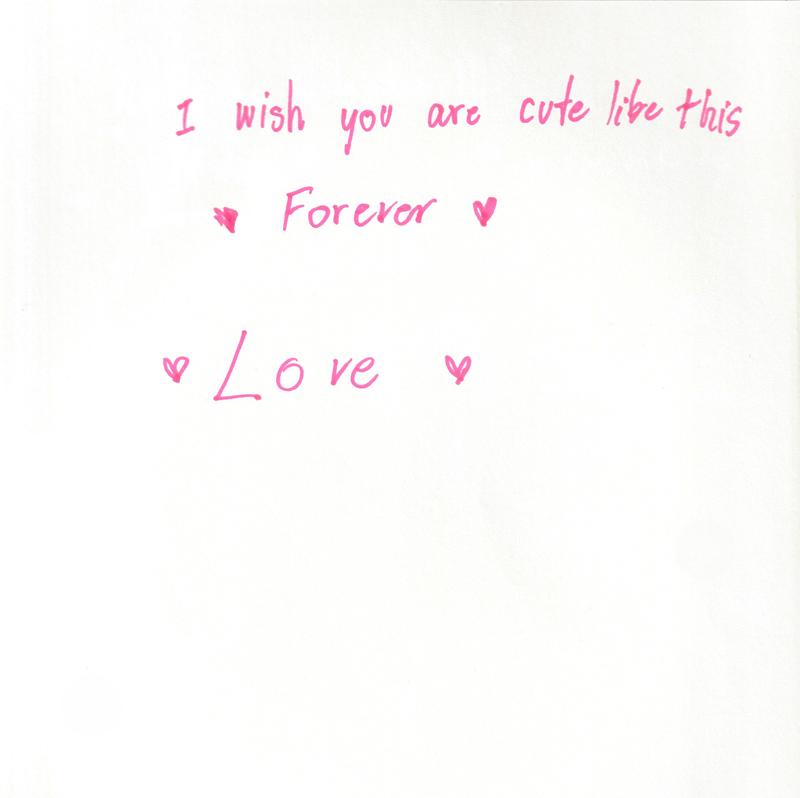 I wish you are cute like this
♥ Forever ♥
♥ Love ♥